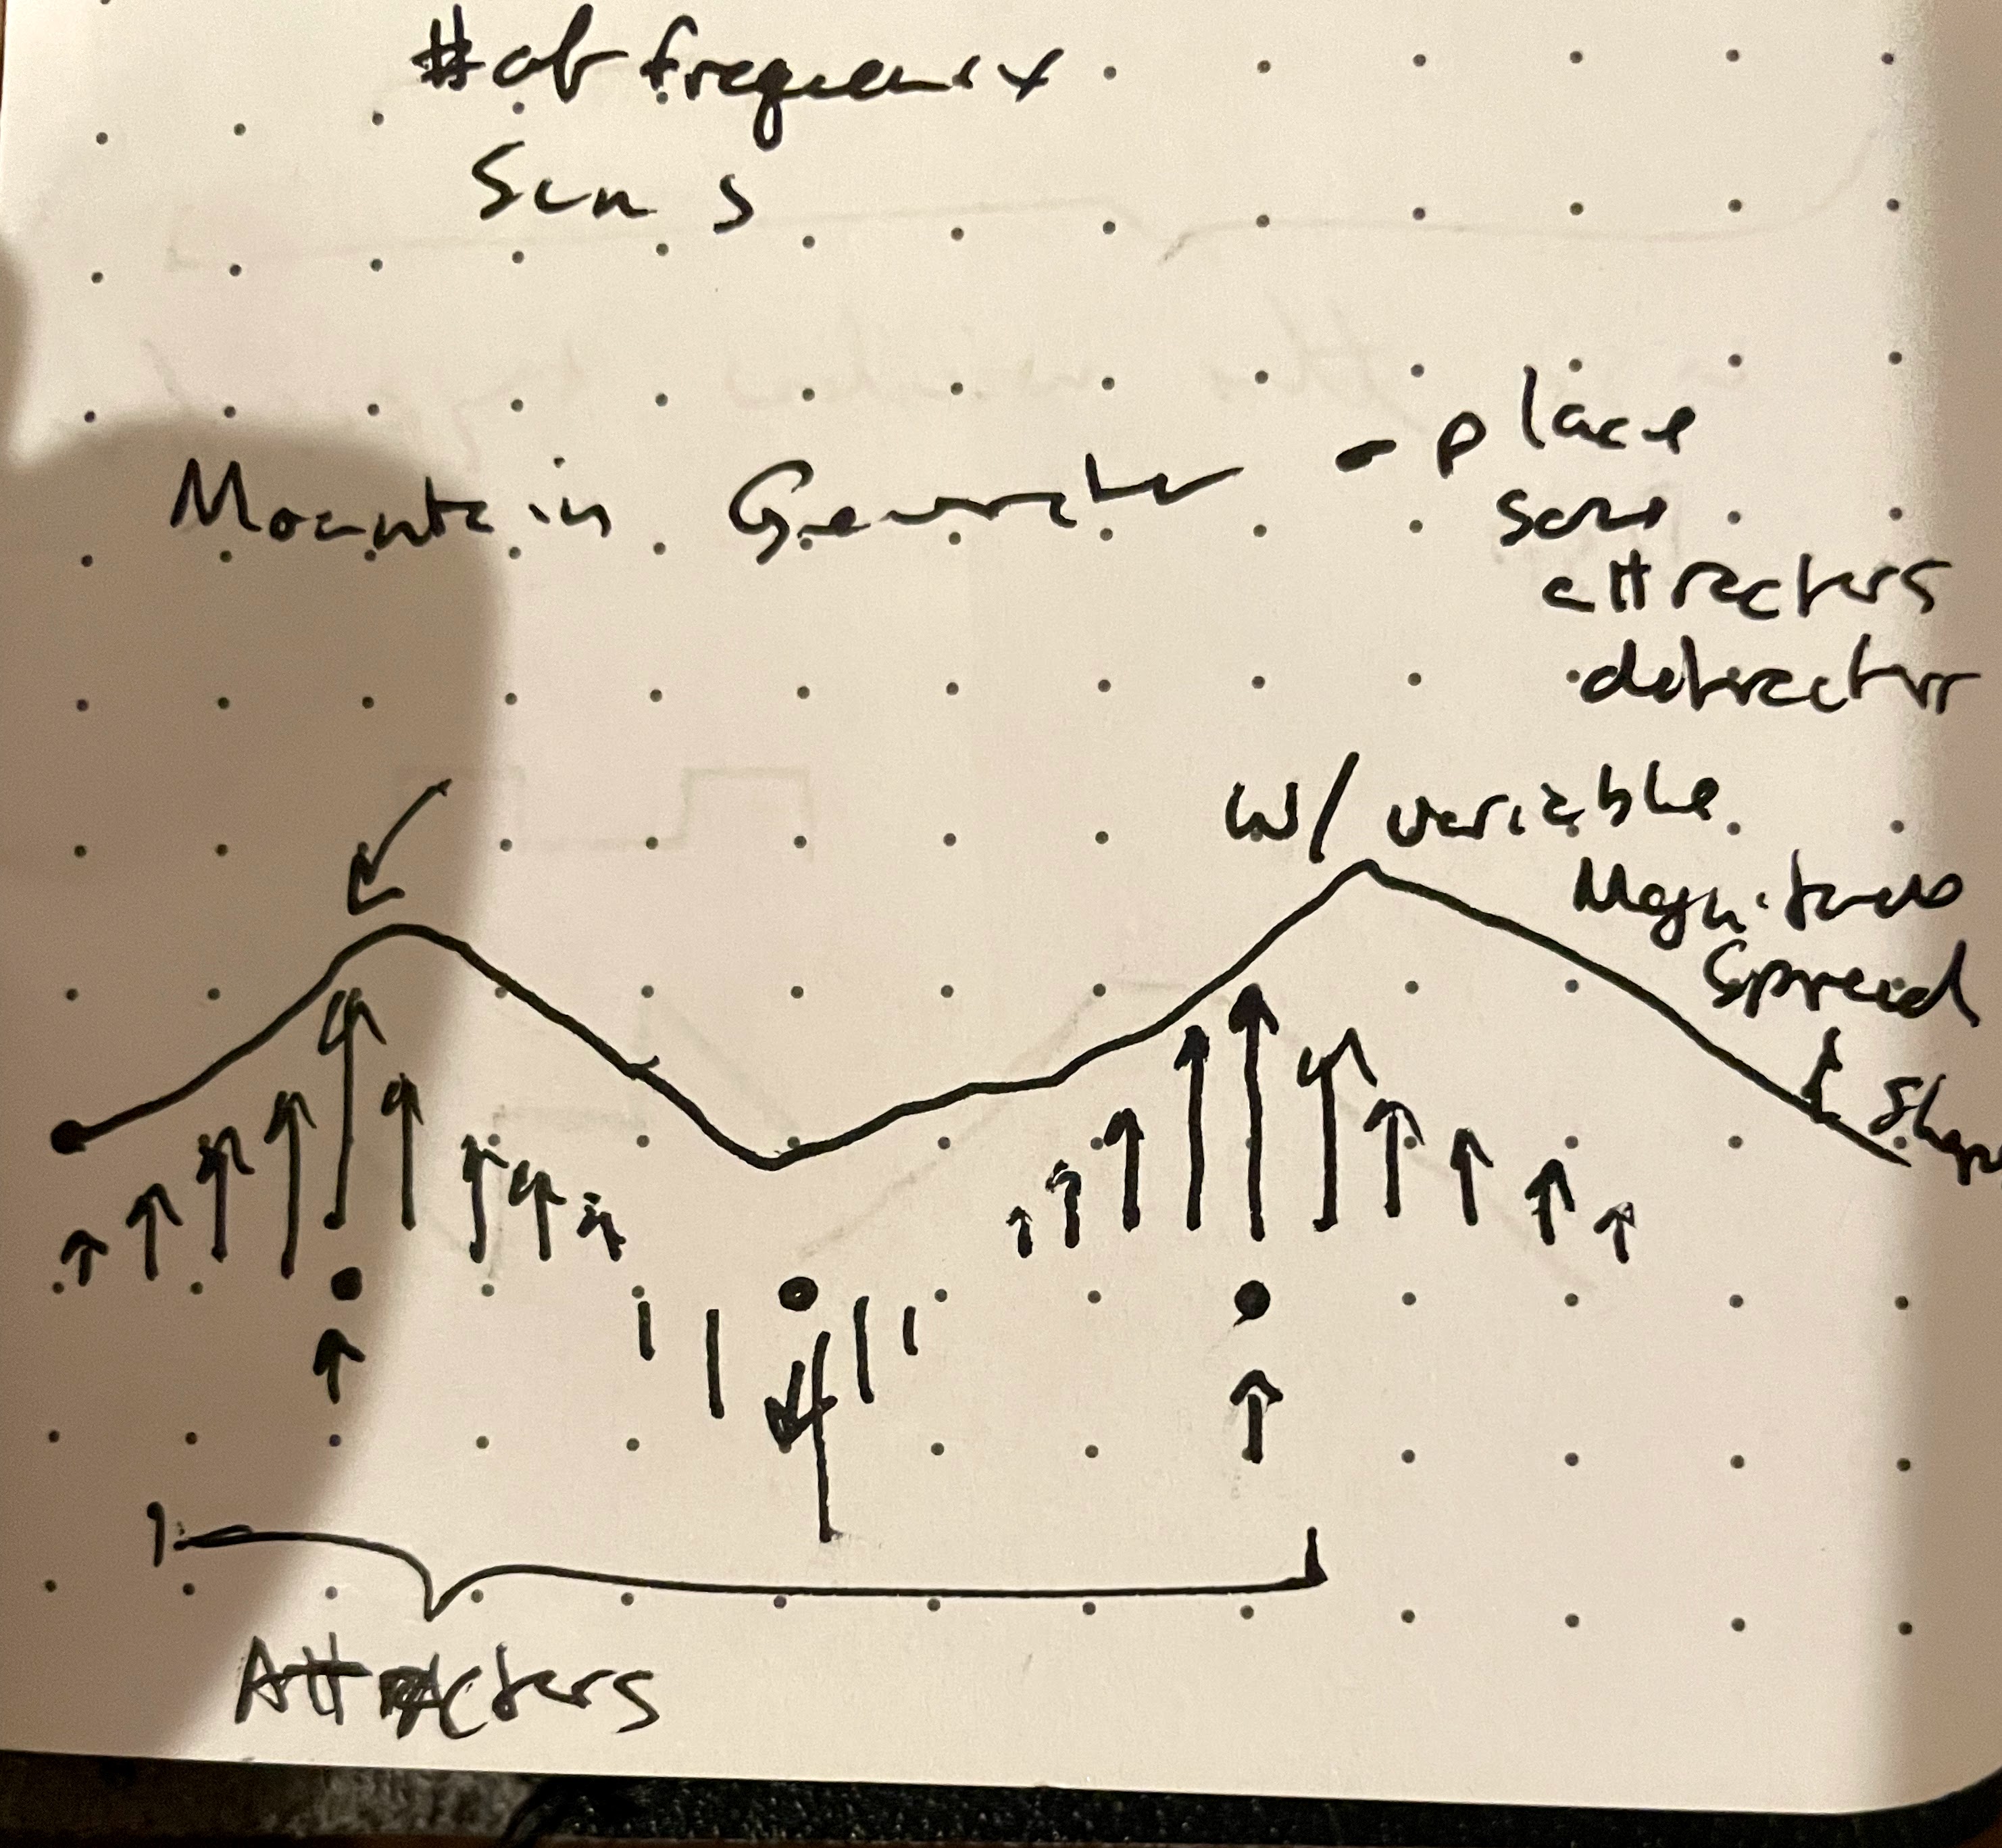 # of frequency
Sun s
Mountain Generator - place
some
attractors
detractors
w/ variable
Magnitude
Spread
&
Attractors